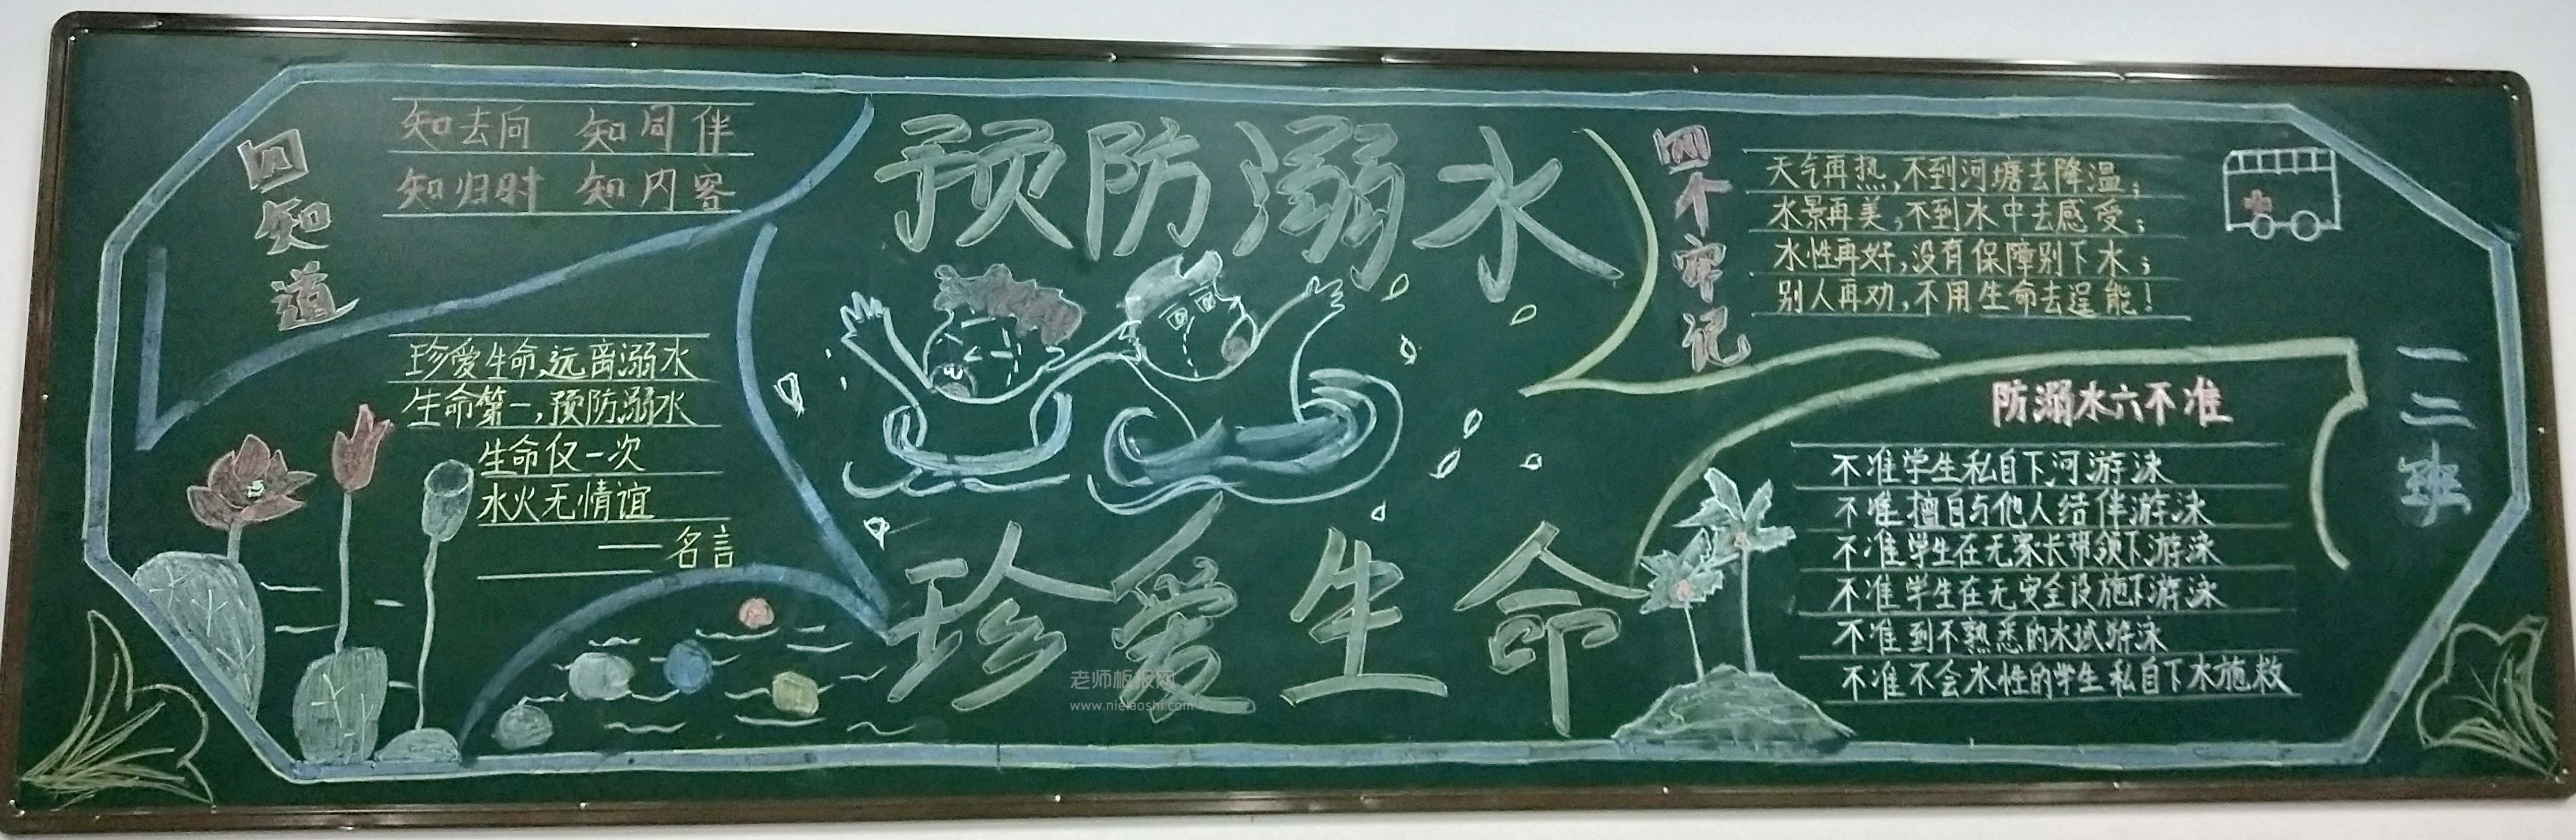 四知道
知去向 知同伴
知归时 知内容
珍爱生命,远离溺水
生命第一,预防溺水
生命仅一次
水火无情谊
——名言
预防溺水
珍爱生命
四个牢记
天气再热,不到河塘去降温;
水景再美,不到水中去感受;
水性再好,没有保障别下水;
别人再劝,不用生命去逞能!
防溺水六不准
不准学生私自下河游泳
不准擅自与他人结伴游泳
不准学生在无家长带领下游泳
不准学生在无安全设施下游泳
不准到不熟悉的水域游泳
不准不会水性的学生私自下水施救
一二班
老师板报网
www.nielaoshi.com